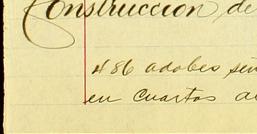 Construccion de
486 adobes sin
en cuartos de